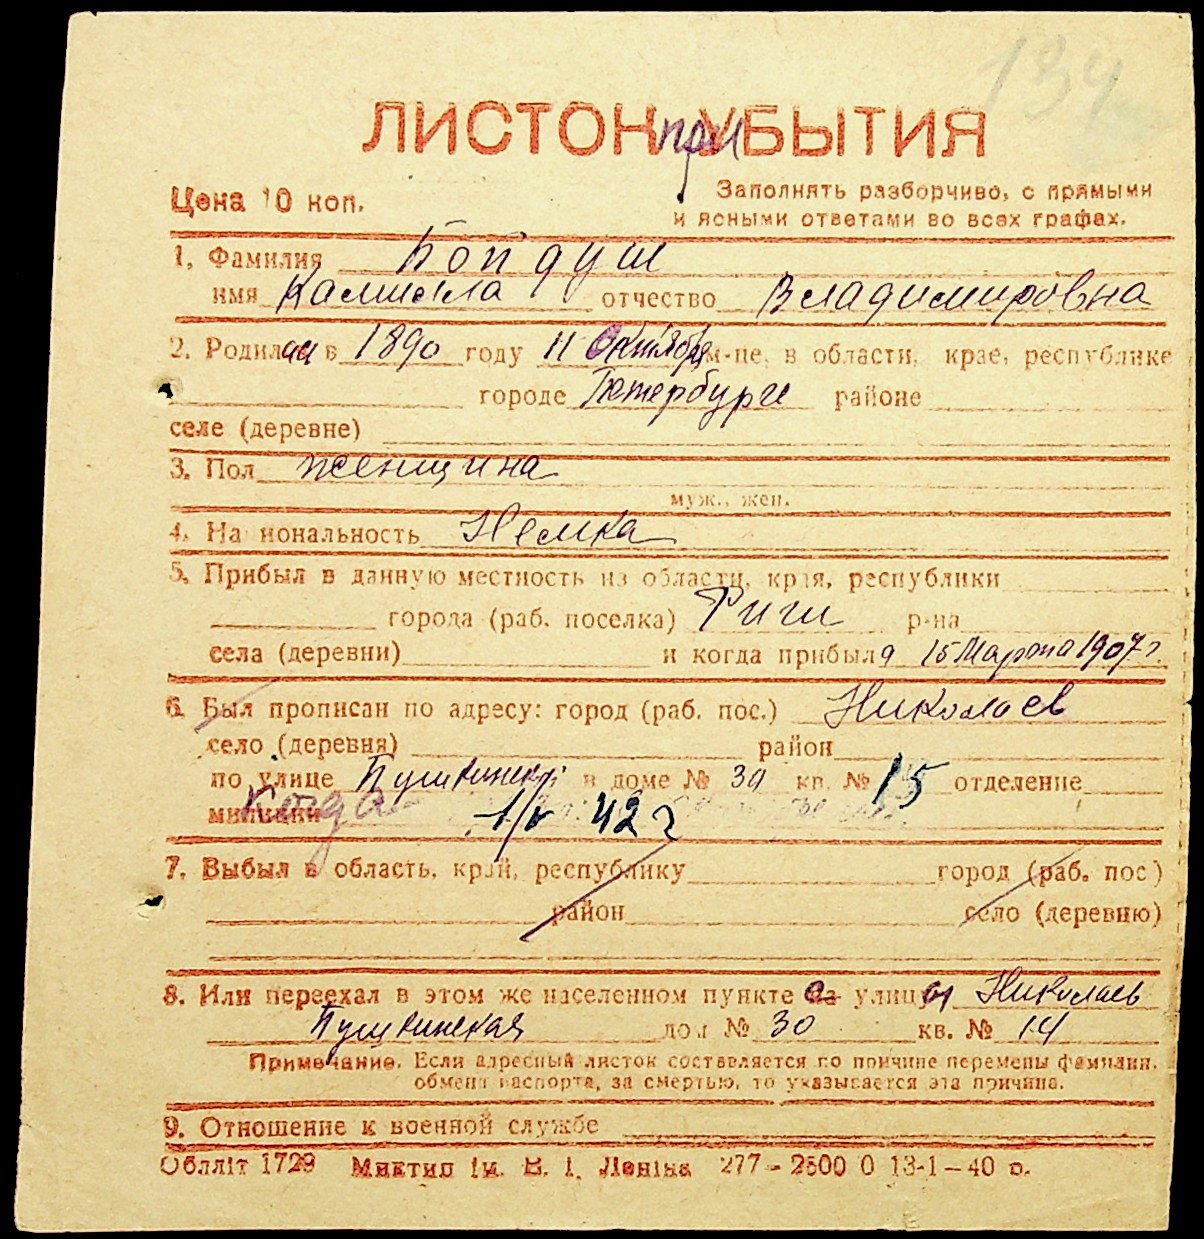 134
ЛИСТОК при УБЫТИЯ
Цена 10 коп.
Заполнять разборчиво, с прямыми
и ясными ответами во всех графах.
1. Фамилия Бопдуш
имя Камилла отчество Владимировна
2. Родилась в 1890 году 11 Октября м-це, в области, крае, республике
городе Петербурге районе
селе (деревне)
3. Пол женщина
муж., жен.
4. Национальность Немка
5. Прибыл в данную местность из области, края, республики
города (раб. поселка) Риги р-на
села (деревни) и когда прибыла 15 Марта 1907 г.
6. Был прописан по адресу: город (раб. пос.) Николаев
село (деревня) район
по улице Пушкинской в доме № 30 кв. № 15 отделение
милиции Когда 1/V 42 г
7. Выбыл в область, край, республику город (раб. пос)
район село (деревню)
8. Или переехал в этом же населенном пункте с улицы Николаев
Пушкинская дом № 30 кв. № 14
Примечание. Если адресный листок составляется по причине перемены фамилии,
обмена паспорта, за смертью, то указывается эта причина.
9. Отношение к военной службе
Облліт 1729 Миктип ім. В. І. Леніна 277–2500 0 13-1–40 р.